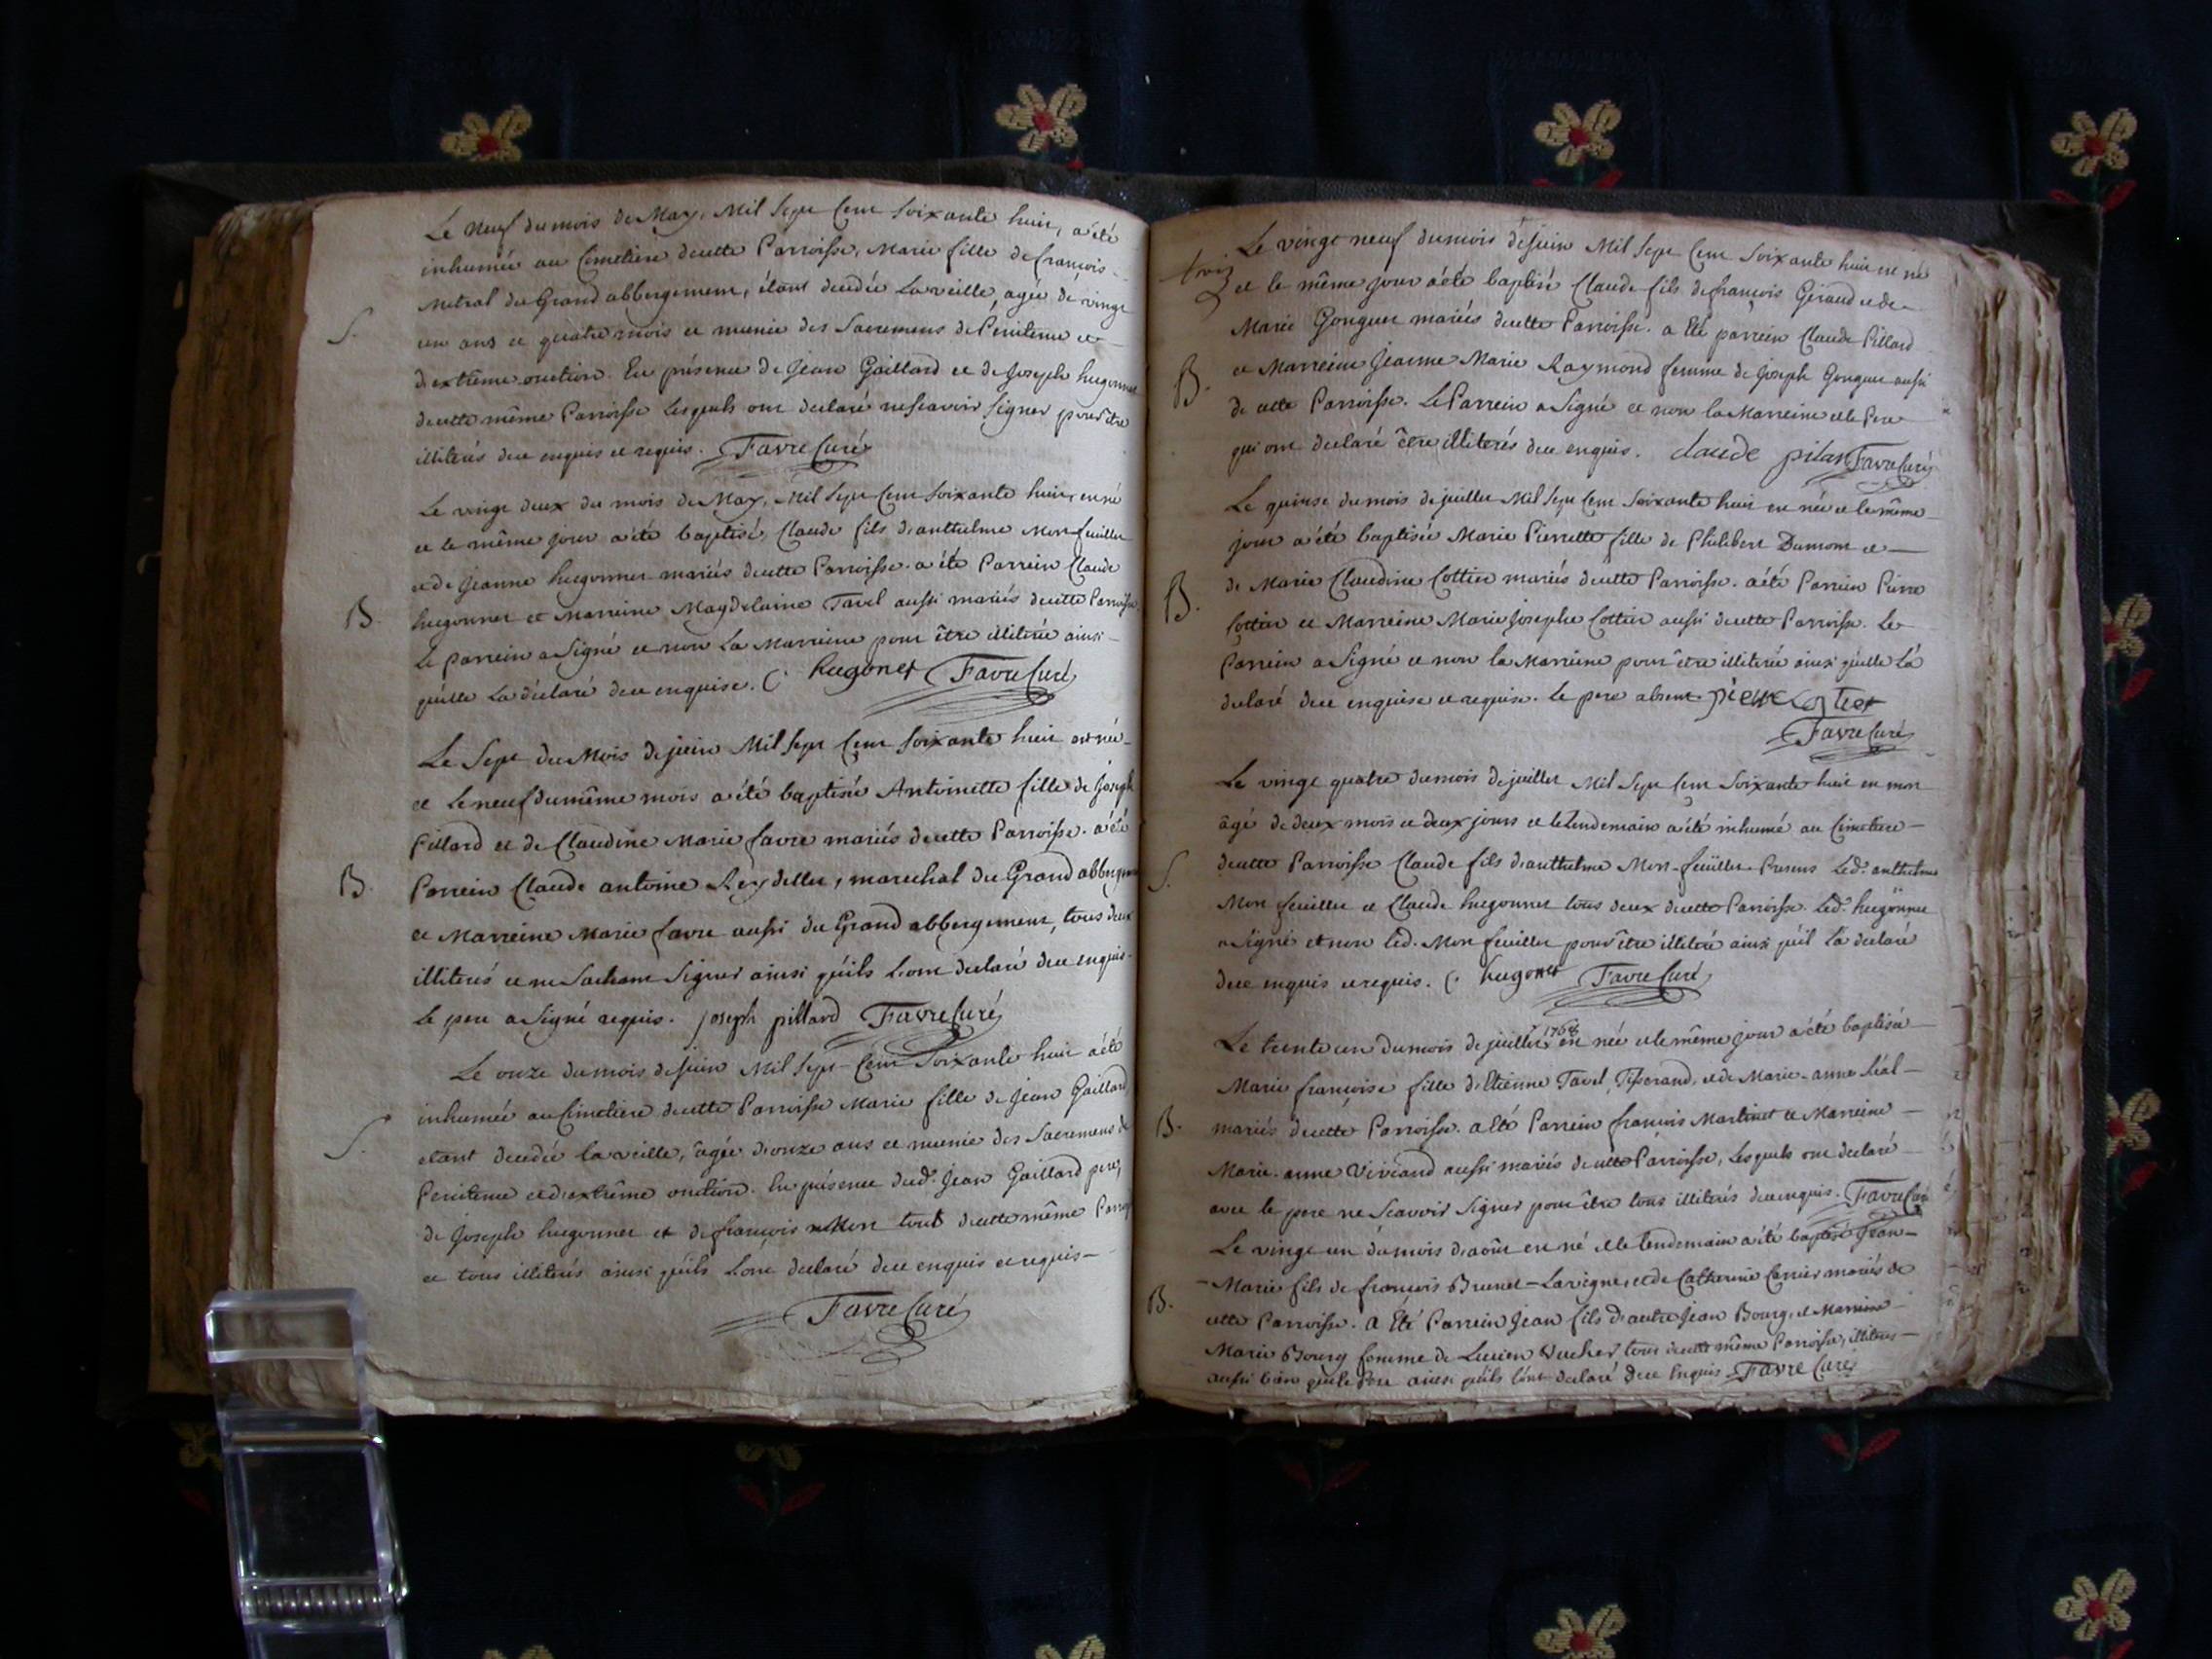 Le Neuf du mois de May, Mil Sept Cent soixante huit, a été
inhumée au Cimetiere de cette Parroisse, Marie fille de françois
Metral du Grand abbergement, étant decedée La veille, agée de vingt
S. un ans et quatre mois et munie des Sacremens de Penitence et
d'extrême onction. En présence de Jean Gaillard et de Joseph hugonnet
de cette même Parroisse Lesquels ont declaré ne scavoir signer pour être
illiterés de ce enquis et requis. Favre Curé
Le vingt deux du mois de May, Mil Sept Cent soixante huit, est né
et le même jour a été baptisé, Claude fils d'anthelme Monfeuillet
et de Jeanne hugonnet mariés de cette Parroisse. a été Parrein Claude
B. hugonnet et Marreine Magdelaine Tavel aussi mariés de cette Parroisse
le parrein a signé et non La Marreine pour être illiterée ainsi
qu'elle La déclaré de ce enquise. C. hugonet Favre Curé
Le Sept du Mois de juin Mil Sept Cent soixante huit est née
et Le neuf du même mois a été baptisée Antoinette fille de Joseph
Pillard et de Claudine Marie favre mariés de cette Parroisse. a été
B. Parrein Claude antoine Reydellet, marechal du Grand abbergement
et Marreine Marie favre aussi du Grand abbergement, tous deux
illiterés et ne Sachant Signer ainsi qu'ils L'ont declaré de ce enquis.
Le pere a Signé requis. joseph pillard Favre Curé
Le onze du mois de juin Mil Sept Cent Soixante huit a été
inhumée au Cimetiere de cette Parroisse Marie fille de Jean Gaillard,
S. etant decedée la veille, âgée d'onze ans et munie des Sacremens de
Penitence et d'extrême onction. En présence dud. Jean Gaillard pere,
de Joseph hugonnet et de françois tous de cette même Parroisse
et tous illiterés ainsi qu'ils L'ont declaré de ce enquis et requis
Favre Curé
Le vingt neuf du mois de juin Mil Sept Cent Soixante huit est né
et le même jour a été baptisé Claude fils de françois Géraud et de
Marie Gonguet mariés de cette Parroisse. a Eté parrein Claude Pillard
B. et Marreine Jeanne Marie Raymond femme de Joseph Gonguet aussi
de cette Parroisse. Le Parrein a Signé et non la Marreine et le Pere
qui ont declaré être illiterés de ce enquis. claude pilar Favre Curé
Le quinse du mois de juillet Mil Sept Cent Soixante huit est née et le même
jour a été baptisée Marie Pierrette fille de Philibert Dumont et
B. de Marie Claudine Cottier mariés de cette Parroisse. a été Parrein Pierre
Cottier et Marreine Marie Josephe Cottier aussi de cette Parroisse. Le
Parrein a Signé et non la Marreine pour être illiterée ainsi qu'elle L'a
declaré de ce enquise et requise. Le pere absent. pierre cottier
Favre Curé
Le vingt quatre du mois de juillet Mil Sept Cent Soixante huit est mort
âgé de deux mois et deux jours et le Lendemain a été inhumé au Cimetiere
S. de cette Parroisse Claude fils d'anthelme Mon-feüillet. Presens Led. anthelme
Mon feuillet et Claude hugonnet tous deux de cette Parroisse. Led. hugonnet
a signé et non Led. Mon feuillet pour être illiteré ainsi qu'il L'a declaré
de ce enquis et requis. C. hugonet Favre Curé
Le trente un du mois de juillet 1768 est née et le même jour a été baptisée
Marie françoise fille d'Etienne Tavel, Tisserand, et de Marie-anne Léal
B. mariés de cette Parroisse. a Eté Parrein françois Martinet et Marreine
Marie-anne Viviand aussi mariés de cette Parroisse, Lesquels ont declaré
avec le pere ne Scavoir Signer pour être tous illiterés de ce enquis. Favre Curé
Le vingt un du mois d'août est né et le lendemain a été baptisé Jean-
B. Marie fils de françois Brunet-Lavigne, et de Catherine Carrier mariés de
cette Parroisse. a Eté Parrein Jean fils d'autre Jean Bourg, et Marreine
Marie Bourg femme de Lucien Vuchet tous de cette même Parroisse, illiteres
aussi bien que le Pere ainsi qu'ils L'ont declaré de ce Enquis. Favre Curé